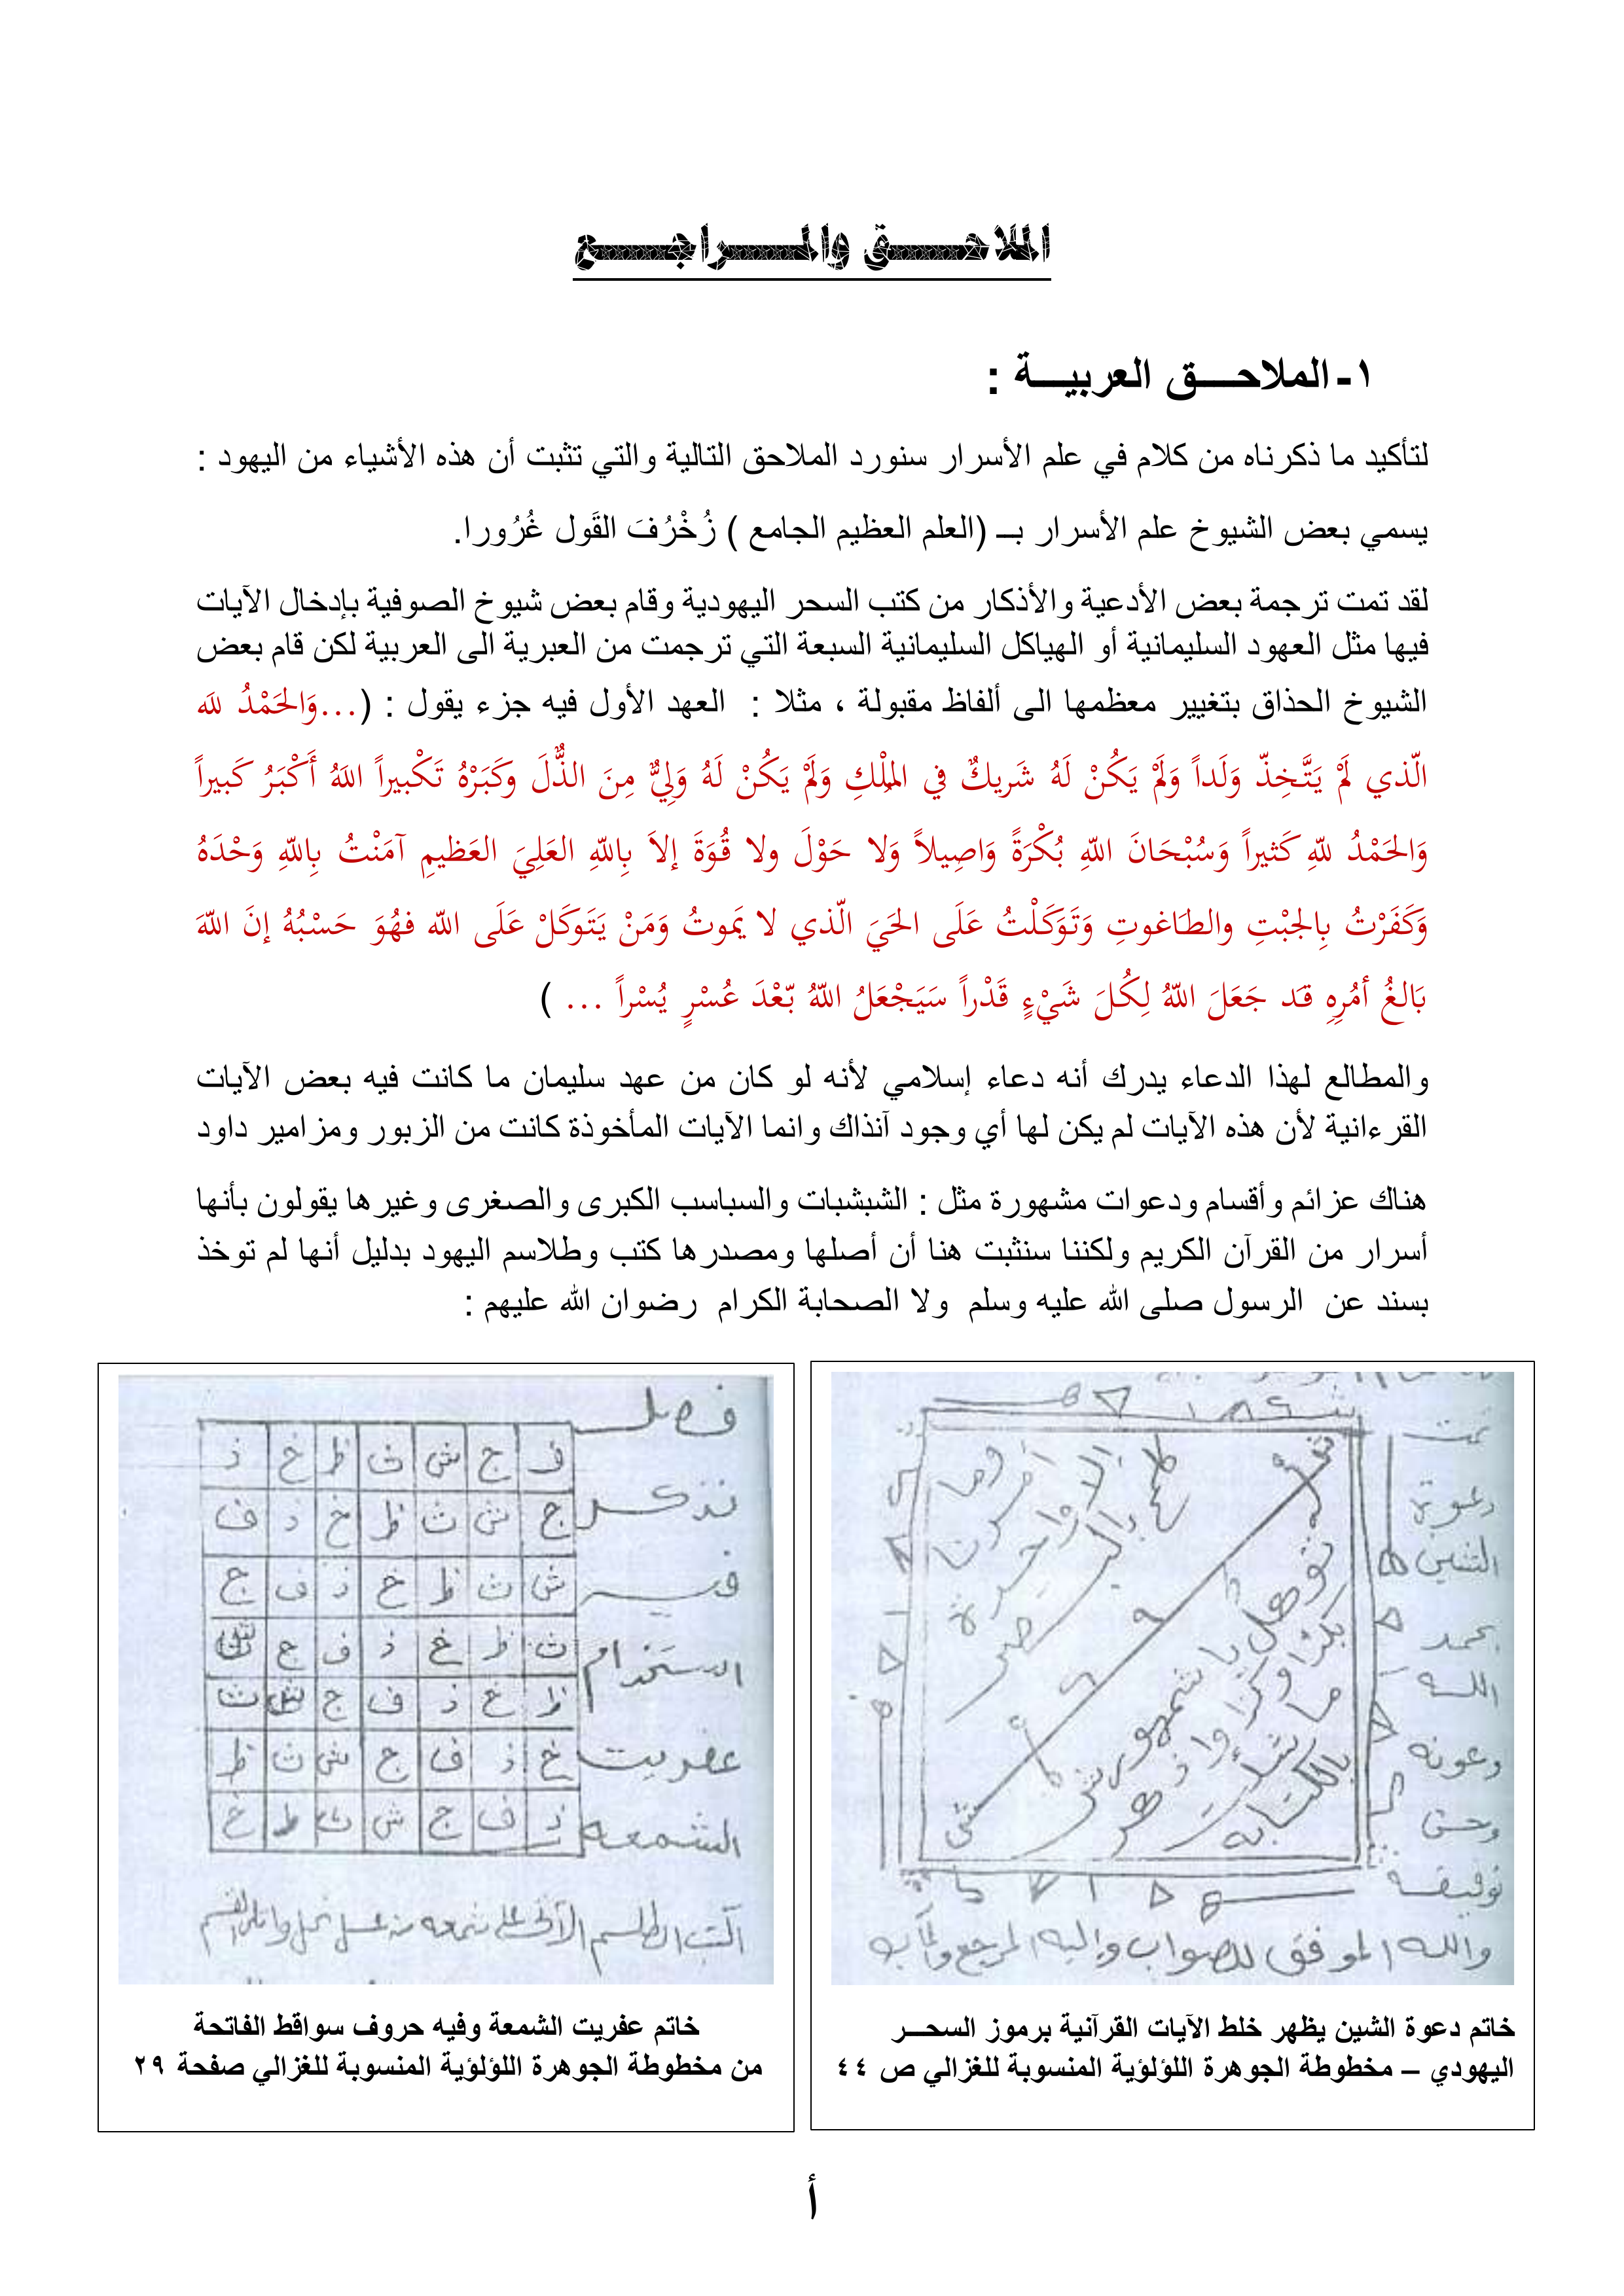 الملاحـــق والمـــراجـــع
١- الملاحـــق العربيـــة :
لتأكيد ما ذكرناه من كلام في علم الأسرار سنورد الملاحق التالية والتي تثبت أن هذه الأشياء من اليهود :
يسمي بعض الشيوخ علم الأسرار بـ (العلم العظيم الجامع ) زُخْرُفَ القَول غُرُورا.
لقد تمت ترجمة بعض الأدعية والأذكار من كتب السحر اليهودية وقام بعض شيوخ الصوفية بإدخال الآيات
فيها مثل العهود السليمانية أو الهياكل السليمانية السبعة التي ترجمت من العبرية الى العربية لكن قام بعض
الشيوخ الحذاق بتغيير معظمها الى ألفاظ مقبولة ، مثلا : العهد الأول فيه جزء يقول : (...وَالحَمْدُ لله
الّذي لَمْ يَتَّخِذّ وَلَداً وَلَمْ يَكُنْ لَهُ شَريكٌ في الملْكِ وَلَمْ يَكُنْ لَهُ وَلِيٌّ مِنَ الذُّلَ وكَبَرْهُ تَكْبيراً اللهُ أَكْبَرُ كَبيراً
وَالحَمْدُ للّهِ كَثيراً وَسُبْحَانَ اللّهِ بُكْرَةً وَاصِيلاً وَلا حَوْلَ ولا قُوَةَ إلاَ بِاللّهِ العَلِيَ العَظيمِ آمَنْتُ بِاللّهِ وَحْدَهُ
وَكَفَرْتُ بِالجبْتِ والطَاغوتِ وَتَوَكَلْتُ عَلَى الحَيَ الّذي لا يَموتُ وَمَنْ يَتَوكَلْ عَلَى اللّه فهُوَ حَسْبُهُ إنَ اللّهَ
بَالغُ أمُرِهِ قَد جَعَلَ اللّهُ لِكُلَ شَيْءٍ قَدْراً سَيَجْعَلُ اللّهُ بّعْدَ عُسْرٍ يُسْراً ... )
والمطالع لهذا الدعاء يدرك أنه دعاء إسلامي لأنه لو كان من عهد سليمان ما كانت فيه بعض الآيات
القرءانية لأن هذه الآيات لم يكن لها أي وجود آنذاك وانما الآيات المأخوذة كانت من الزبور ومزامير داود
هناك عزائم وأقسام ودعوات مشهورة مثل : الشبشبات والسباسب الكبرى والصغرى وغيرها يقولون بأنها
أسرار من القرآن الكريم ولكننا سنثبت هنا أن أصلها ومصدرها كتب وطلاسم اليهود بدليل أنها لم توخذ
بسند عن الرسول صلى الله عليه وسلم ولا الصحابة الكرام رضوان الله عليهم :
تمت
دعوة
بحمد
الله
وعونه
وحسن
توفيقه
والله الموفق للصواب وإليه المرجع والمآب
خاتم دعوة الشين يظهر خلط الآيات القرآنية برموز السحـــر
اليهودي – مخطوطة الجوهرة اللؤلؤية المنسوبة للغزالي ص ٤٤
فصل
ف ج ش ث ظ خ ز
نذكر
ج ش ث ظ خ ز ف
فيه
ش ث ظ خ ز ف ج
استخدام
ث ظ خ ز ف ج ش
ظ خ ز ف ج ش ث
عفريت
خ ز ف ج ش ث ظ
الشمعه
ز ف ج ش ث ظ خ
اكتب الطلسم الآتى على شمعه من عسل نحل واتلى القسم
خاتم عفريت الشمعة وفيه حروف سواقط الفاتحة
من مخطوطة الجوهرة اللؤلؤية المنسوبة للغزالي صفحة ٢٩
أ